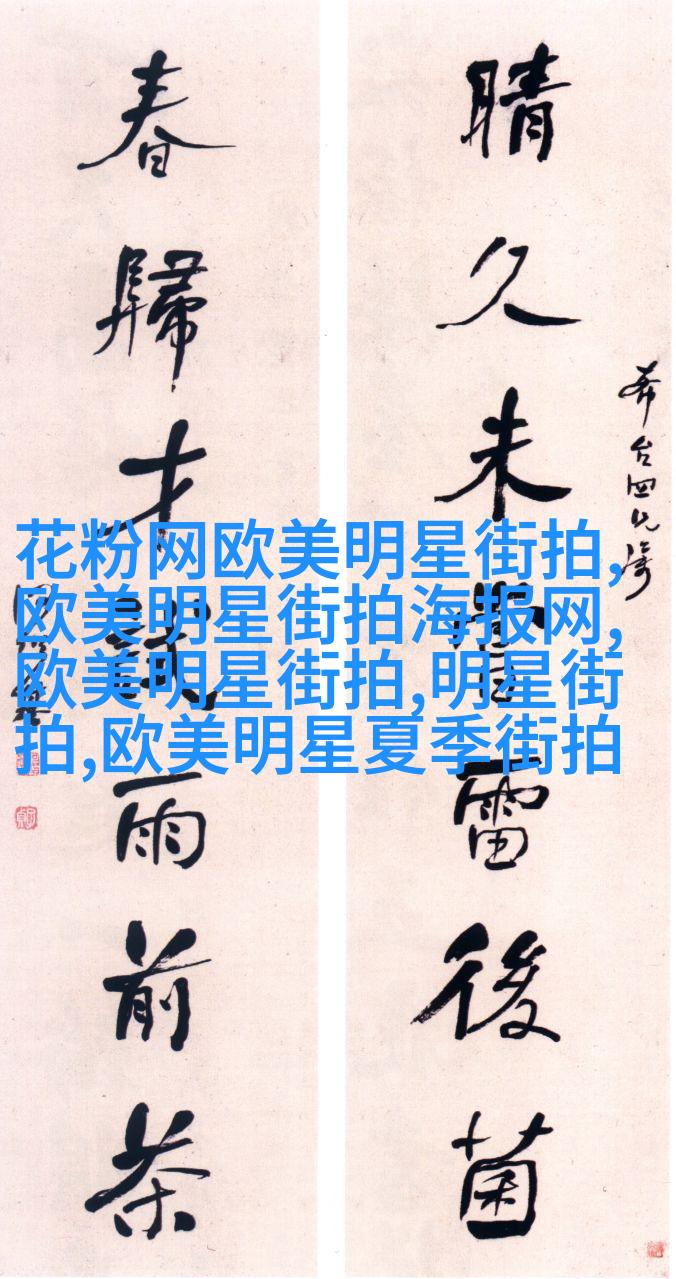 晴久未嘗雷後菌
春歸才試雨前茶
花粉网欧美明星街拍,
欧美明星街拍海报网,
欧美明星街拍,明星街
拍,欧美明星夏季街拍